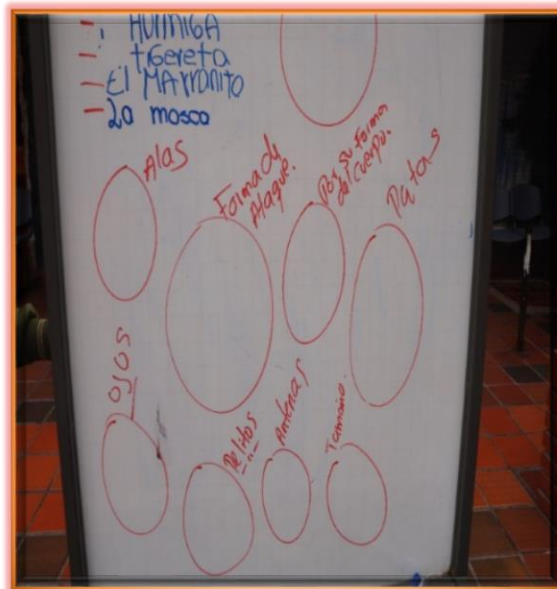 - HORMIGA
- tigereta
- El MARRANITO
- La mosca
Alas
Forma de
Ataque.
Por su forma
del cuerpo.
Patas
Ojos
Pelitos
Antenas
Tamaño.